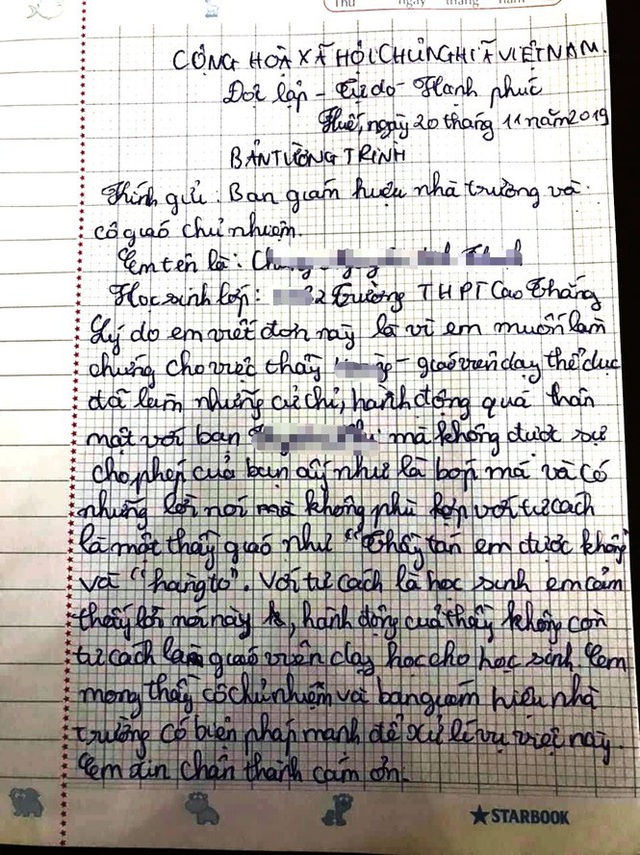 Thứ ngày tháng năm
CỘNG HOÀ XÃ HỘI CHỦ NGHĨA VIỆT NAM
Độc lập - Tự do - Hạnh phúc
Huế, ngày 20 tháng 11 năm 2019
BẢN TƯỜNG TRÌNH
Kính gửi: Ban giám hiệu nhà trường và
cô giáo chủ nhiệm.
Em tên là:
Học sinh lớp: 2 Trường THPT Cao Thắng
Lý do em viết đơn này là vì em muốn làm
chứng cho việc thầy - giáo viên dạy thể dục
đã làm những cử chỉ, hành động quá thân
mật với bạn mà không được sự
cho phép của bạn ấy như là bóp má và có
những lời nói mà không phù hợp với tư cách
là một thầy giáo như "Thầy tán em được không
và "hàng to". Với tư cách là học sinh em cảm
thấy lời nói này, hành động của thầy không còn
tư cách làm giáo viên dạy học cho học sinh. Em
mong thầy cô chủ nhiệm và ban giám hiệu nhà
trường có biện pháp mạnh để xử lí vụ việc này.
Em xin chân thành cám ơn.
★STARBOOK